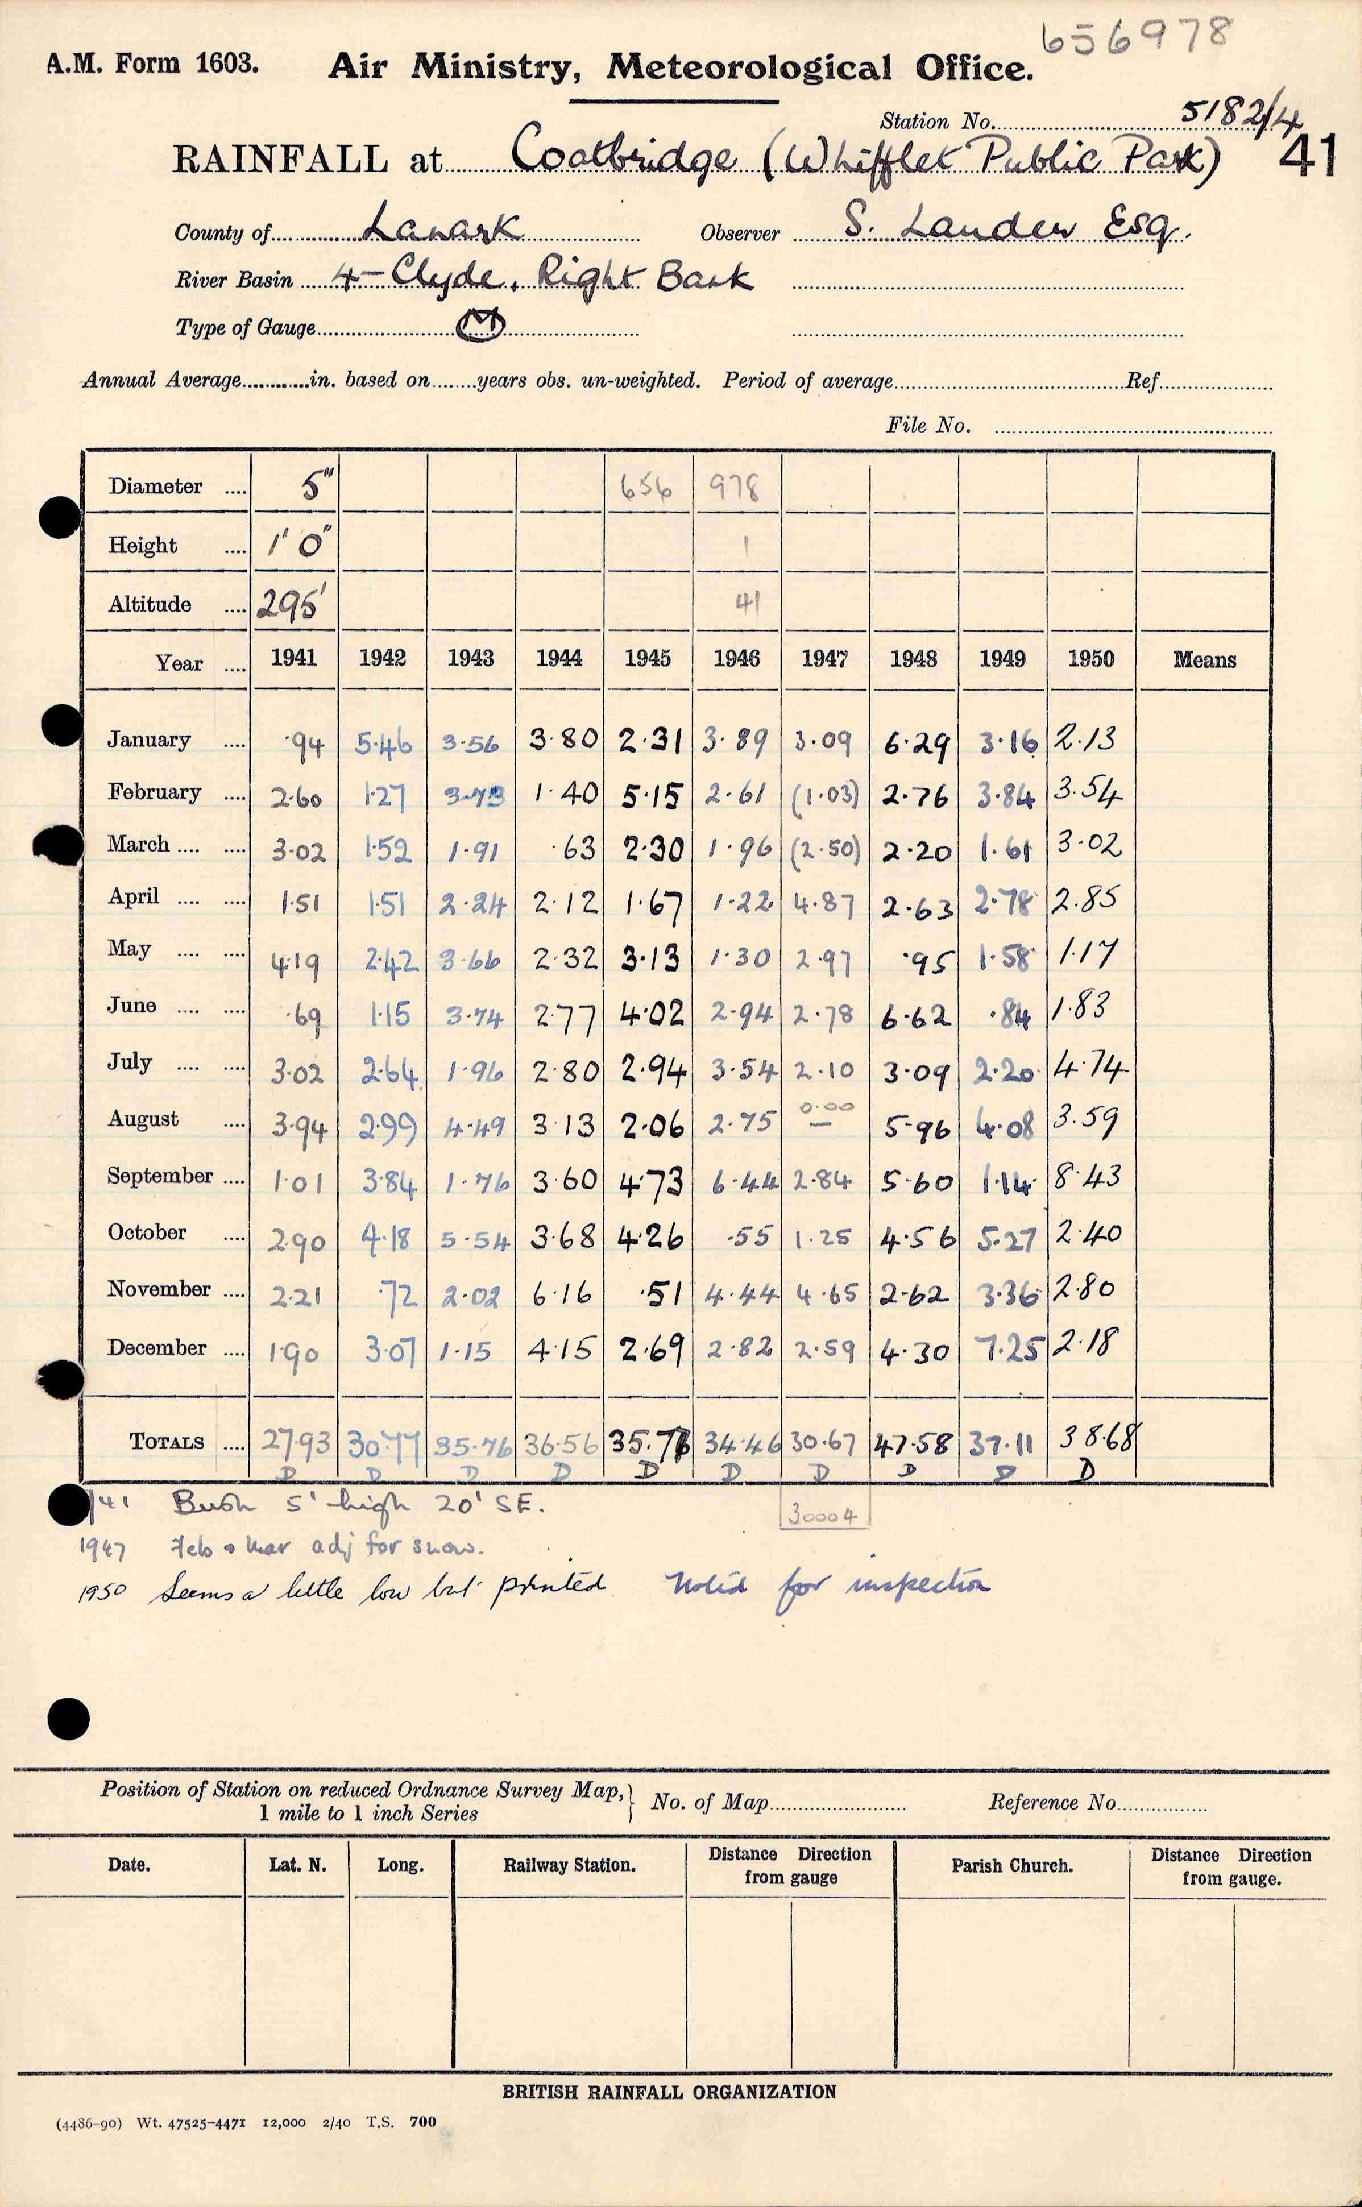 656978
A.M. Form 1603. Air Ministry, Meteorological Office.
Station No. 5182/4
RAINFALL at Coatbridge (Whifflet Public Park) 41
County of Lanark Observer S. Lauden Esq.
River Basin 4-Clyde, Right Bank
Type of Gauge M
Annual Average in. based on years obs. un-weighted. Period of average Ref
File No.
Diameter .... 5" 656 978
Height .... 1' 0" 1
Altitude .... 295' 41
Year .... 1941 1942 1943 1944 1945 1946 1947 1948 1949 1950 Means
January .... ·94 5·46 3·56 3·80 2·31 3·89 3·09 6·29 3·16 2·13
February .... 2·60 1·27 3·73 1·40 5·15 2·61 (1·03) 2·76 3·84 3·54
March .... .... 3·02 1·52 1·91 ·63 2·30 1·96 (2·50) 2·20 1·61 3·02
April .... .... 1·51 1·51 2·24 2·12 1·67 1·22 4·87 2·63 2·78 2·85
May .... .... 4·19 2·42 3·66 2·32 3·13 1·30 2·97 ·95 1·58 1·17
June .... .... ·69 1·15 3·74 2·77 4·02 2·94 2·78 6·62 ·84 1·83
July .... .... 3·02 2·64 1·96 2·80 2·94 3·54 2·10 3·09 2·20 4·74
August .... 3·94 2·99 4·49 3·13 2·06 2·75 0·00 — 5·96 4·08 3·59
September .... 1·01 3·84 1·76 3·60 4·73 6·44 2·84 5·60 1·14 8·43
October .... 2·90 4·18 5·54 3·68 4·26 ·55 1·25 4·56 5·27 2·40
November .... 2·21 ·72 2·02 6·16 ·51 4·44 4·65 2·62 3·36 2·80
December .... 1·90 3·07 1·15 4·15 2·69 2·82 2·59 4·30 7·25 2·18
TOTALS .... 27·93 30·77 35·76 36·56 35·77 34·46 30·67 47·58 37·11 38·68
D D D D D D D D D D
/41 Bush 5' high 20' SE. 30004
1947 Feb & Mar adj for snow.
1950 Seems a little low but printed Noted for inspection
Position of Station on reduced Ordnance Survey Map, 1 mile to 1 inch Series } No. of Map Reference No
Date. Lat. N. Long. Railway Station. Distance Direction from gauge Parish Church. Distance Direction from gauge.
BRITISH RAINFALL ORGANIZATION
(4486-90) Wt. 47525-4471 12,000 2/40 T.S. 700